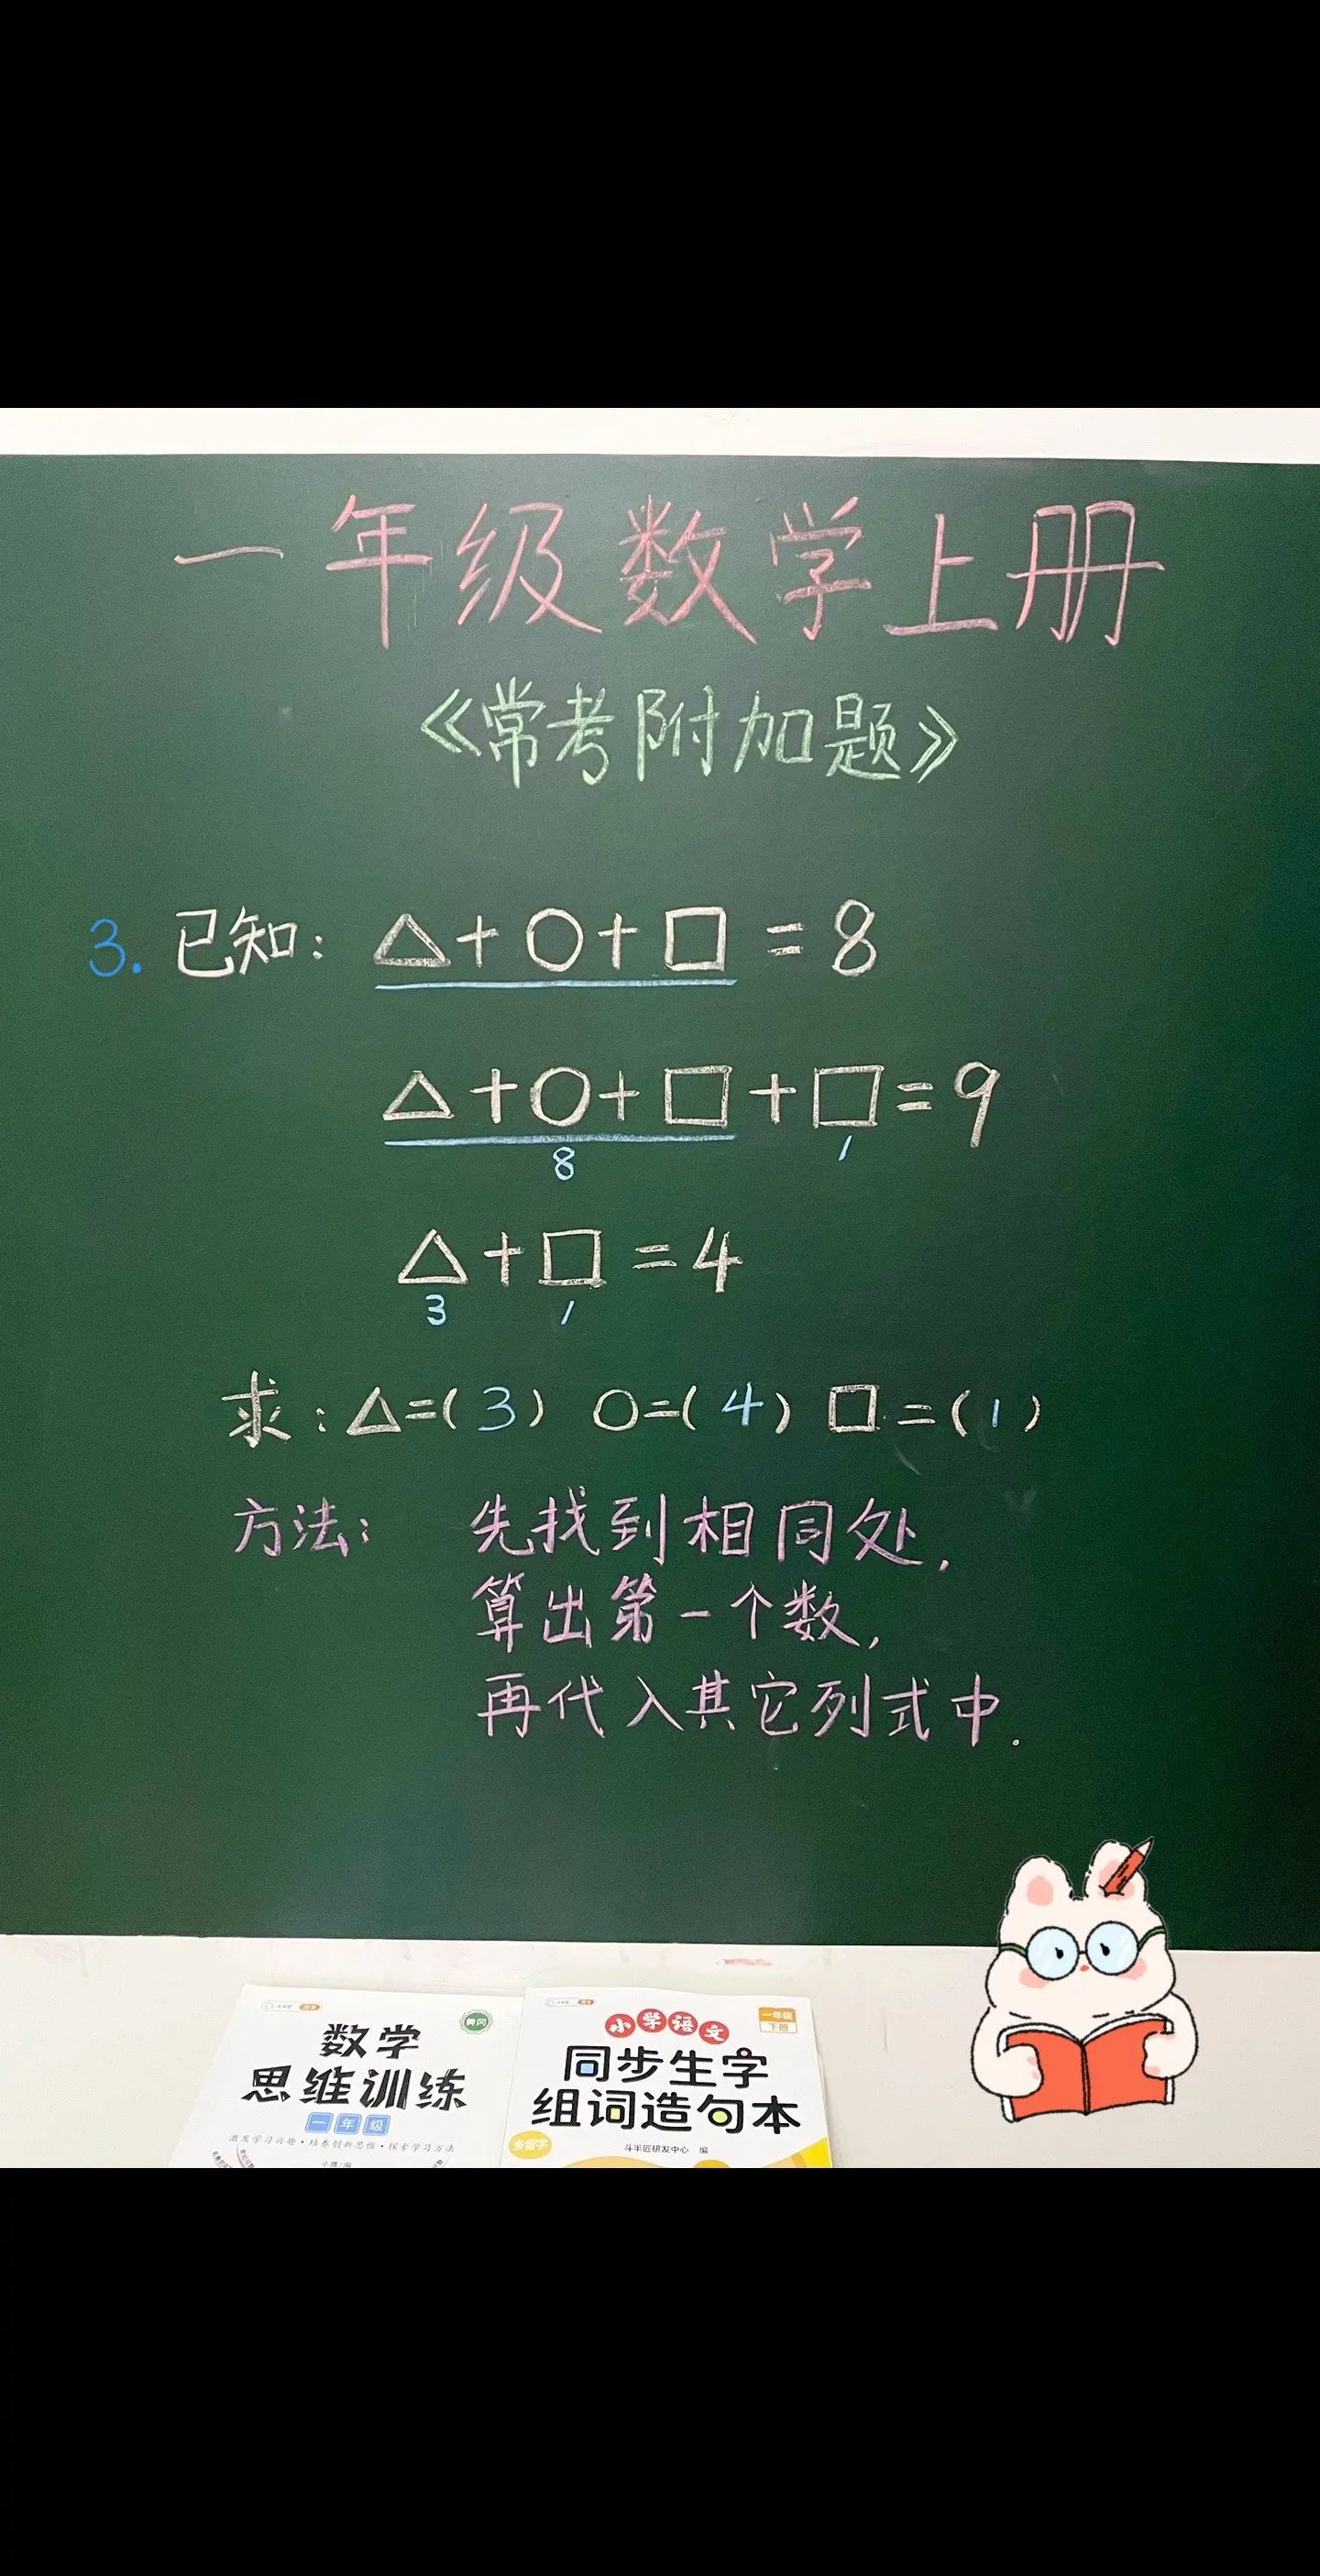 一年级数学上册
《常考附加题》
3. 已知: △+○+□=8
△+○+□+□=9
8 1
△+□=4
3 1
求:△=(3) ○=(4) □=(1)
方法: 先找到相同处,
算出第一个数,
再代入其它列式中.
黄冈
数学
思维训练
一年级
激发学习兴趣·培养创新思维·探索学习方法
小学语文
一年级
下册
同步生字
组词造句本
多音字
斗半匠研发中心 编